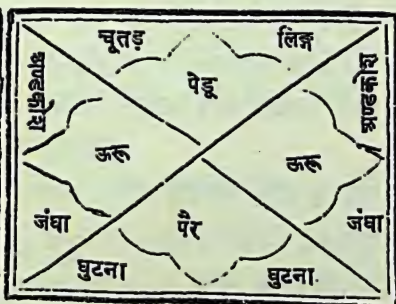 चूतड़ लिङ्ग
अण्डकोश पेडू अण्डकोश
ऊरू ऊरू
जंघा पैर जंघा
घुटना घुटना